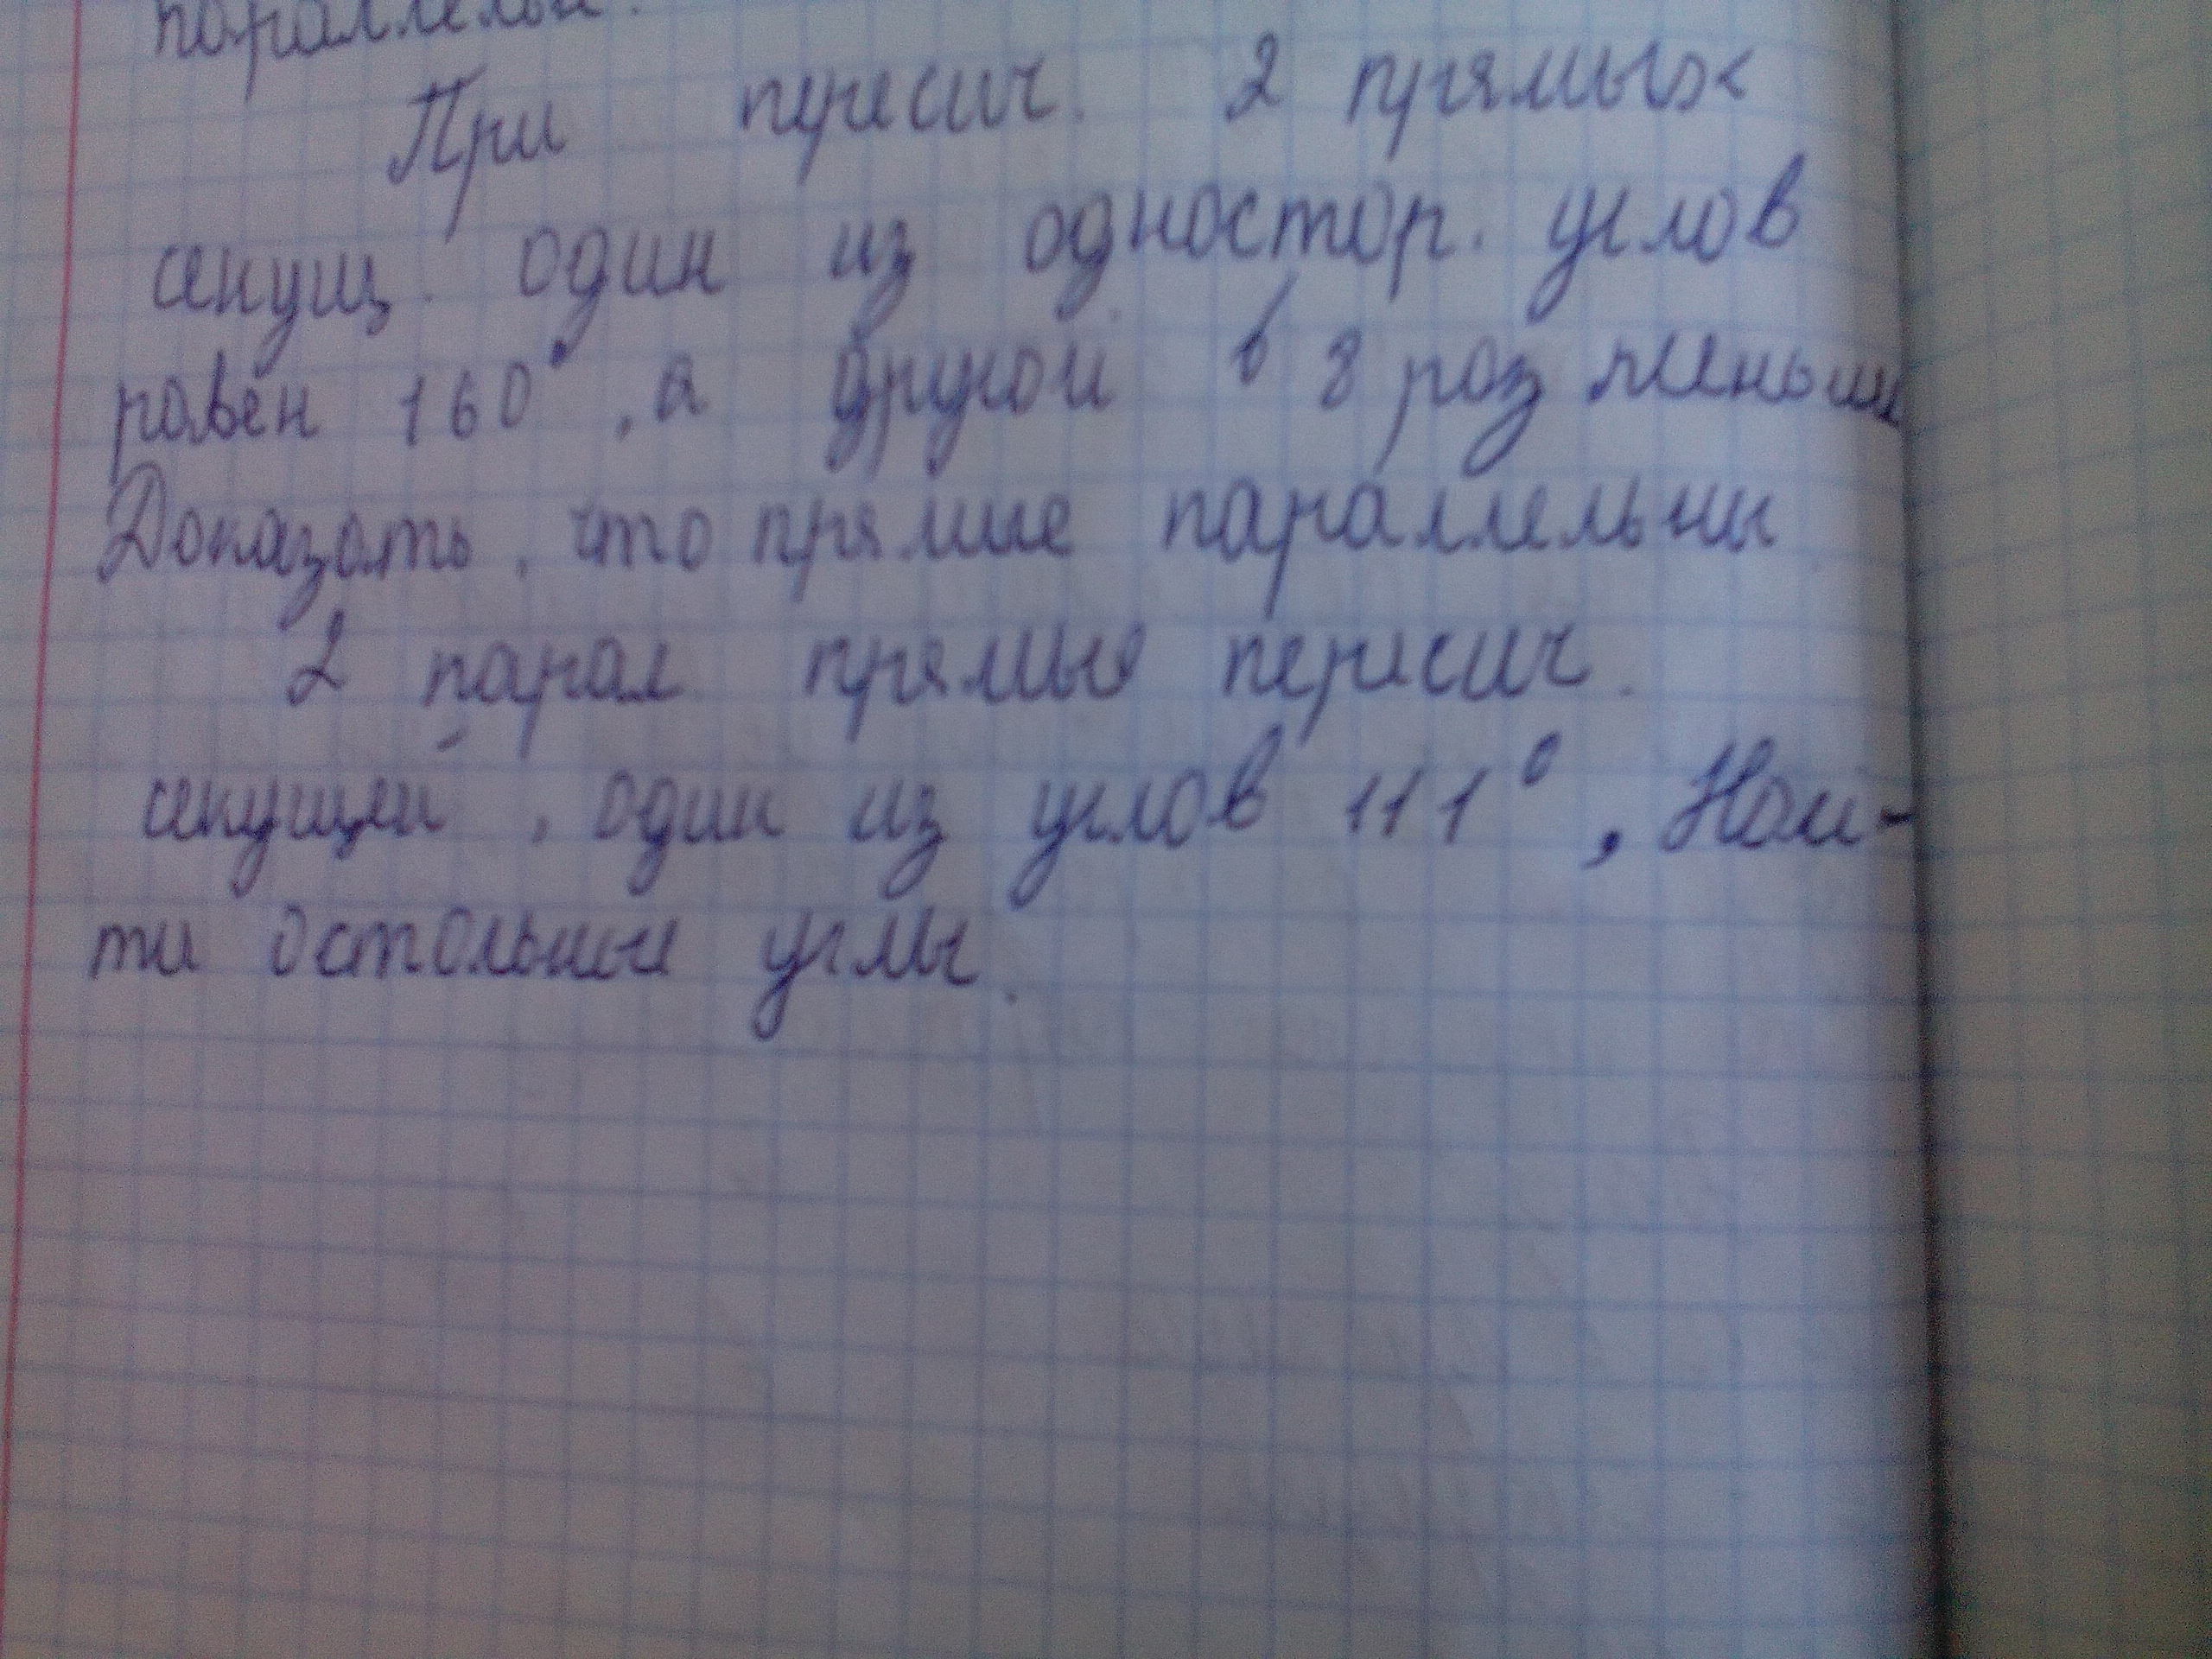 параллельн.
При пересич. 2 прямых
секущ. один из одностор. углов
равен 160°, а другой в 8 раз меньше
Доказать, что прямые параллельны
2 парал. прямые пересич.
секущей, один из углов 111°, Най-
ти остольные углы.